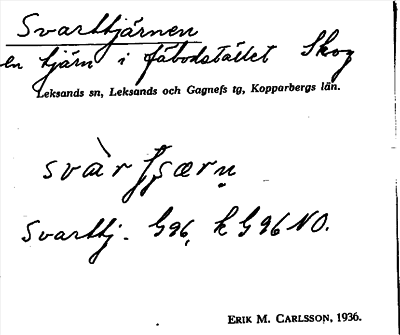 Svarttjärnen
en tjärn i fäbodstället Skog
Leksands sn, Leksands och Gagnefs tg, Kopparbergs län.
svàrtjærn̥
Svarttj. G96, k G96 NO.
ERIK M. CARLSSON, 1936.